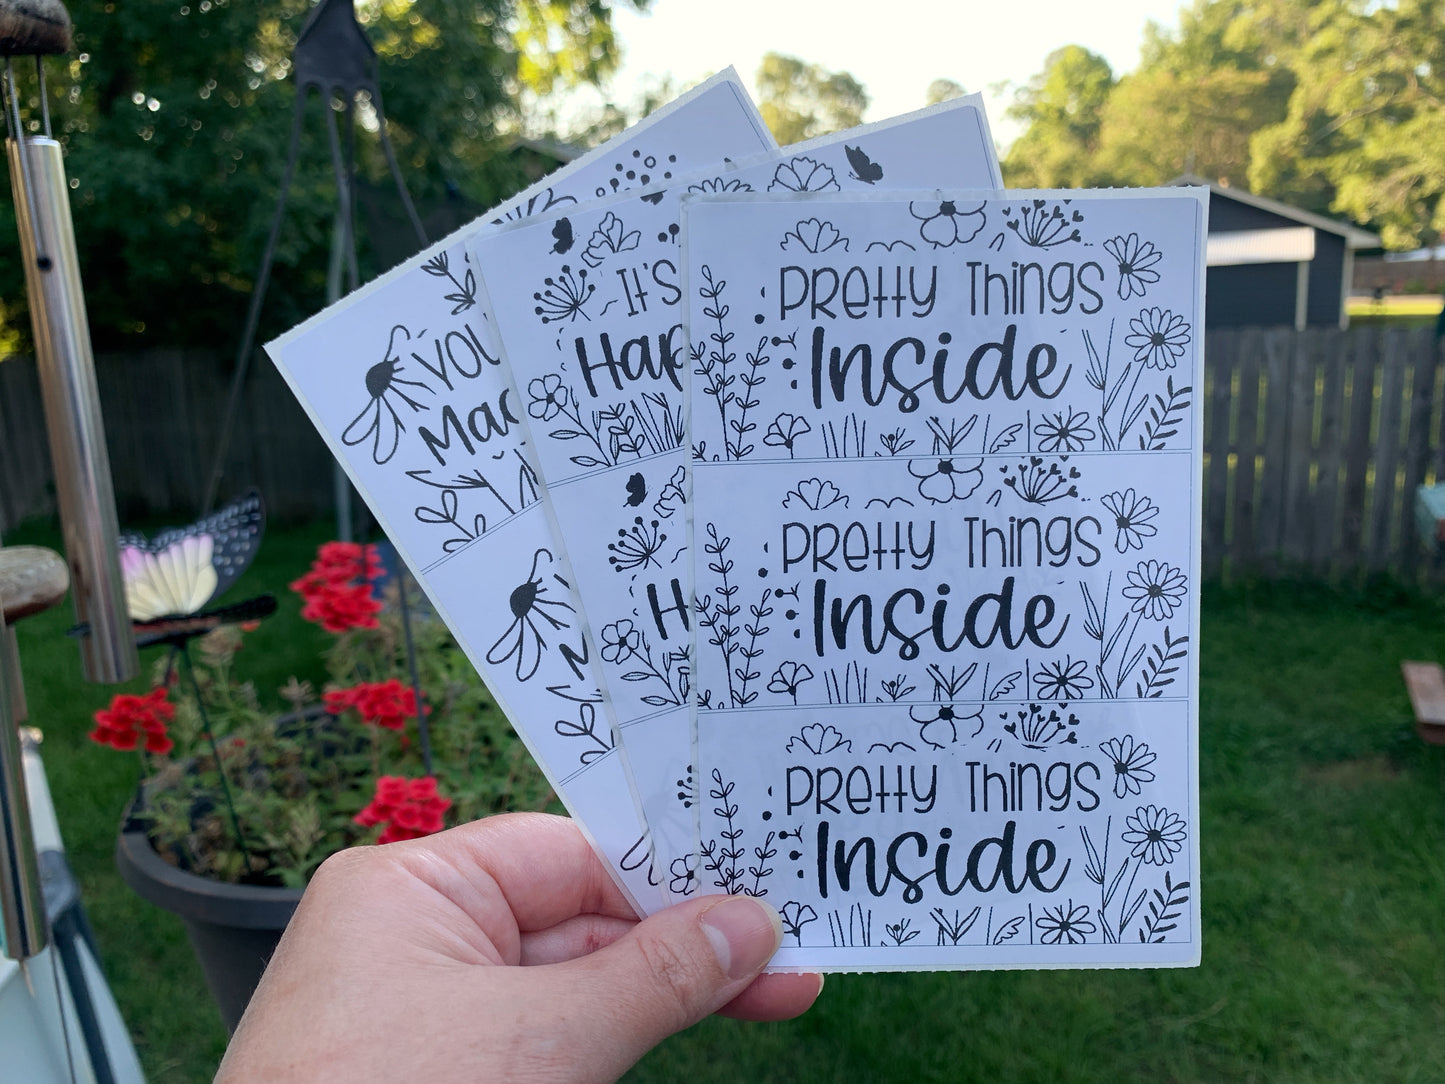 YOU
It's
Pretty Things
Inside
Pretty Things
Inside
Pretty Things
Inside